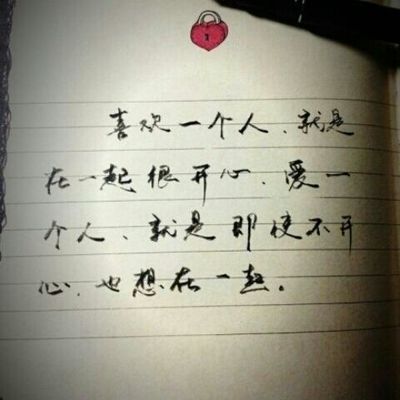 喜欢一个人、就是
在一起很开心、爱一
个人、就是即使不开
心、也想在一起。